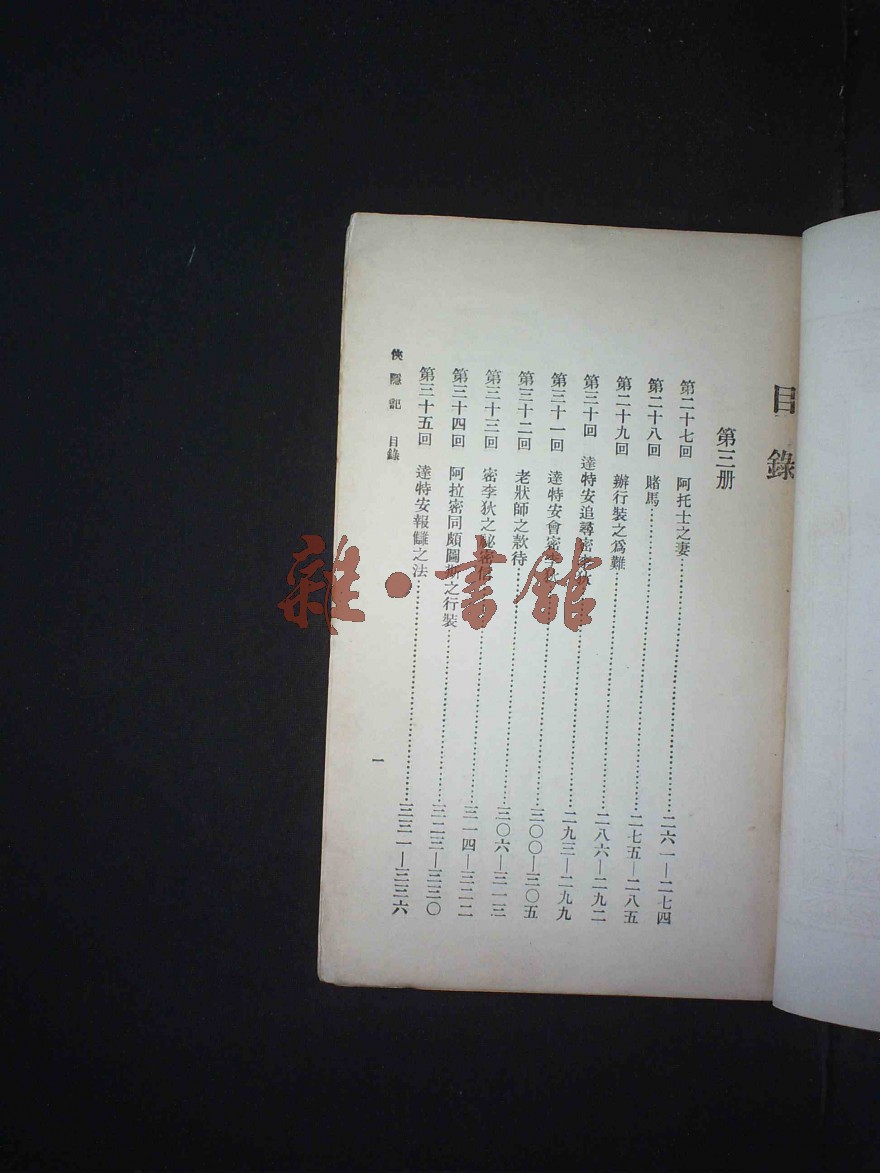 目錄
第三册
第二十七回 阿托士之妻……二六一—二七四
第二十八回 賭馬……二七五—二八五
第二十九回 辦行裝之爲難……二八六—二九二
第三十回 達特安追尋密……二九三—二九九
第三十一回 達特安會密李狄……三〇〇—三〇五
第三十二回 老狀師之款待……三〇六—三一三
第三十三回 密李狄之秘密信……三一四—三二二
第三十四回 阿拉密同頗圖斯之行裝……三二三—三三〇
第三十五回 達特安報讎之法……三三一—三三六
俠隱記 目錄
一
雜·書館